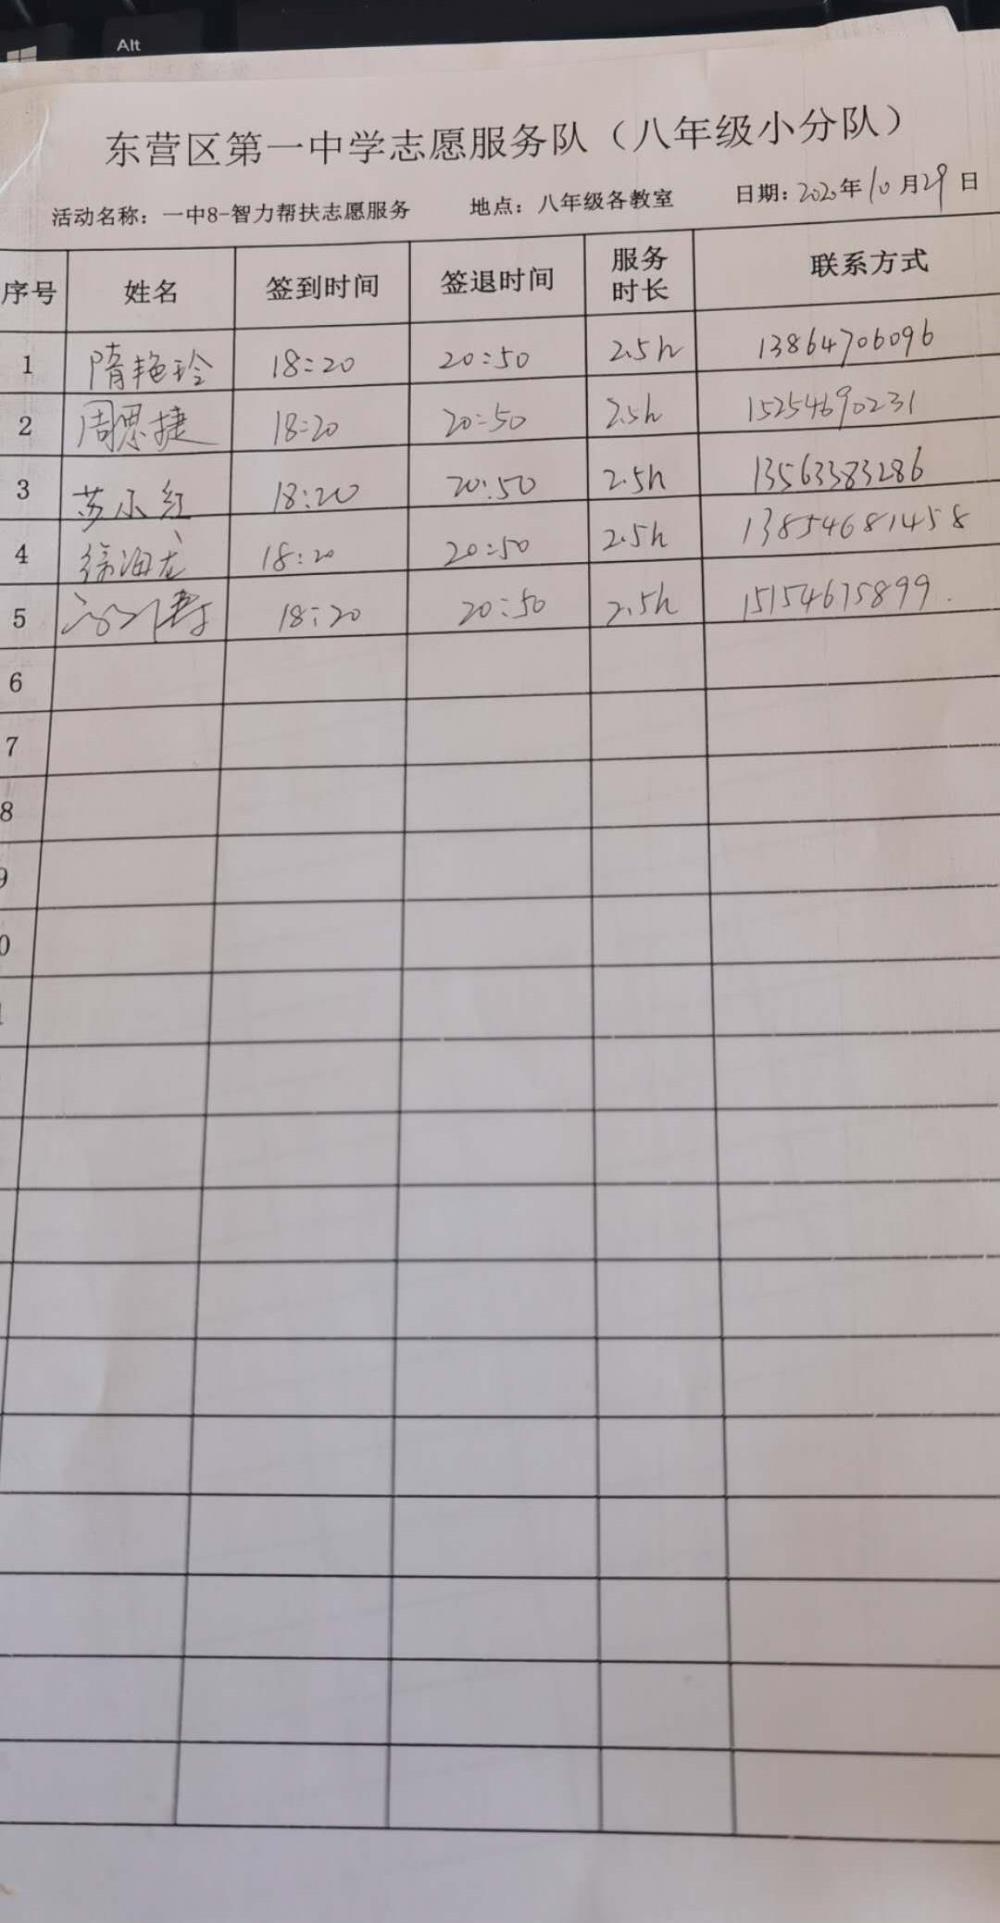 Alt
东营区第一中学志愿服务队（八年级小分队）
活动名称：一中8-智力帮扶志愿服务 地点：八年级各教室 日期：2020年10月29日
序号 姓名 签到时间 签退时间 服务时长 联系方式
1 隋艳玲 18:20 20:50 2.5h 13864706096
2 周恩捷 18:20 20:50 2.5h 15254690231
3 苏小红 18:20 20:50 2.5h 13563383286
4 徐海龙 18:20 20:50 2.5h 13854681458
5 18:20 20:50 2.5h 15154675899
6
7
8
9
0